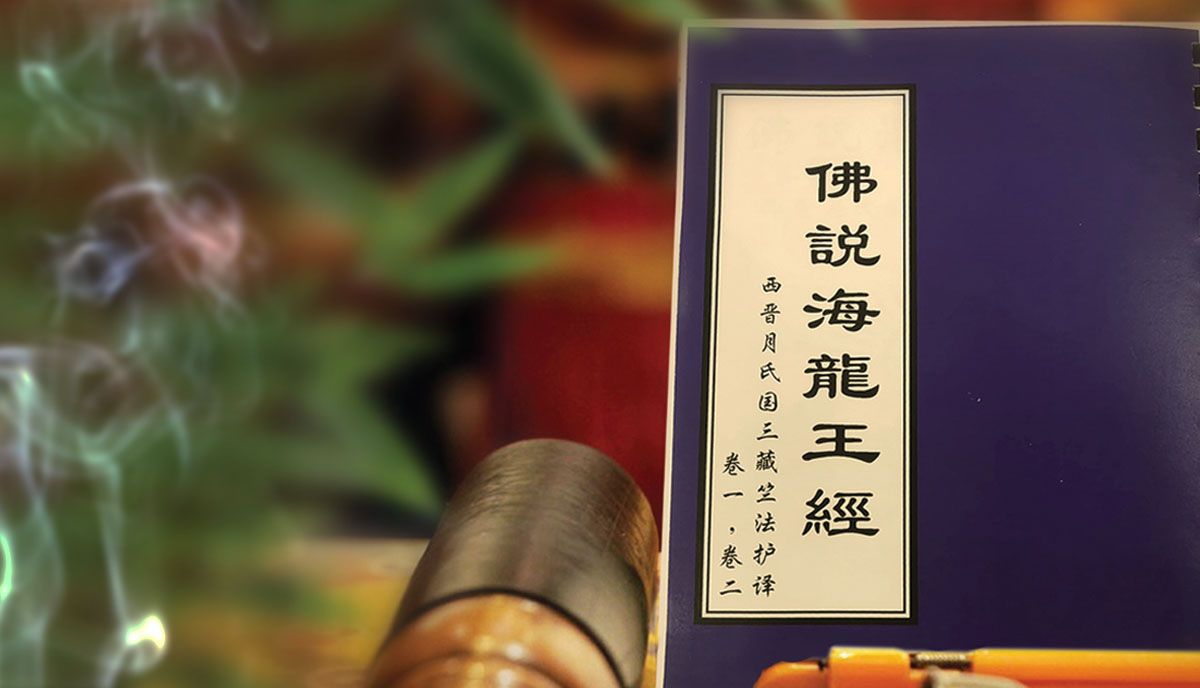 佛説海龍王經
西晋月氏国三藏竺法护译
卷一，卷二